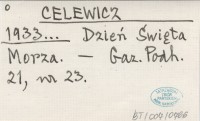 CELEWICZ
1933... Dzień Święta
Morza. — Gaz. Podh.
21, nr 23.